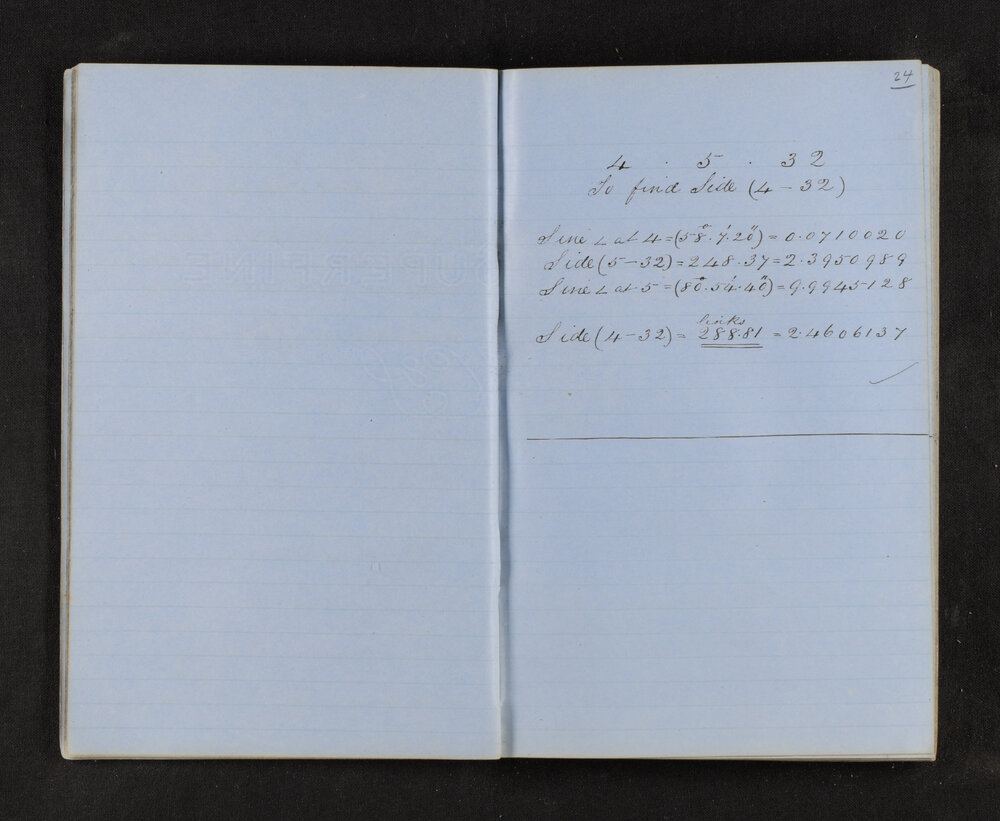 24
4 . 5 . 32
To find Side (4 - 32)
Sine ∠ at 4 = (58°. 7'. 20") = 0.0710020
Side (5 - 32) = 248.37 = 2.3950989
Sine ∠ at 5 = (80°. 54'. 40") = 9.9945128
links
Side (4 - 32) = 288.81 = 2.4606137
SUPERFINE